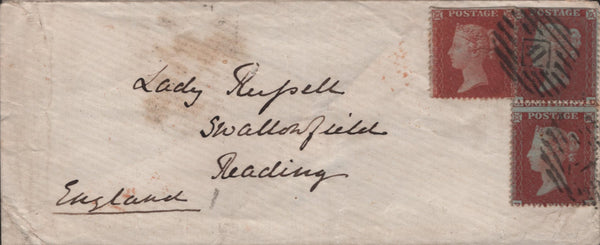 POSTAGE
POSTAGE
POSTAGE
Lady Russell
Swallowfield
Reading
England